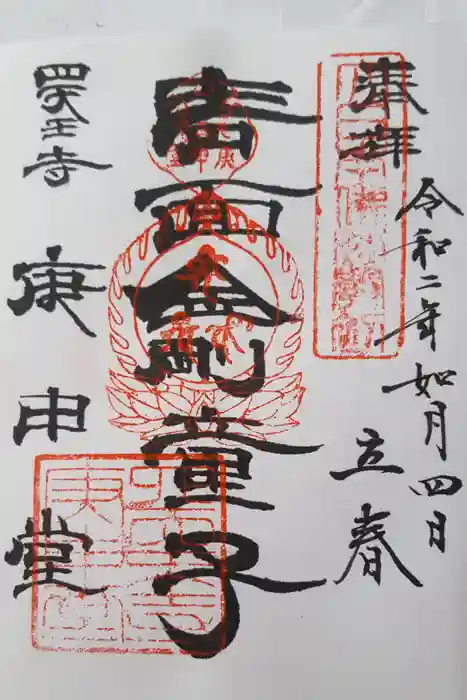 奉拝
令和二年如月四日
立春
青面金剛童子
四天王寺
庚申堂